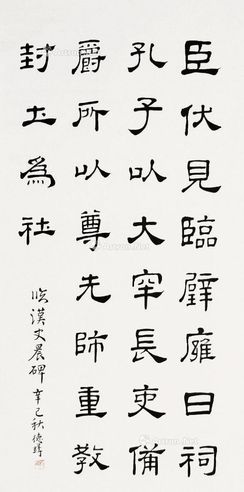 臣伏見臨辟廱日祠
孔子以大牢長吏備
爵所以尊先師重教
封土為社
臨漢史晨碑 辛巳秋